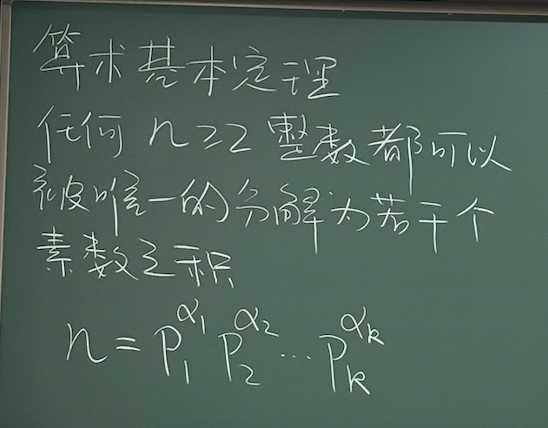 算术基本定理
任何 n≥2 整数都可以
被唯一的分解为若干个
素数之积
n = p₁^α₁ p₂^α₂ ⋯ pₖ^αₖ